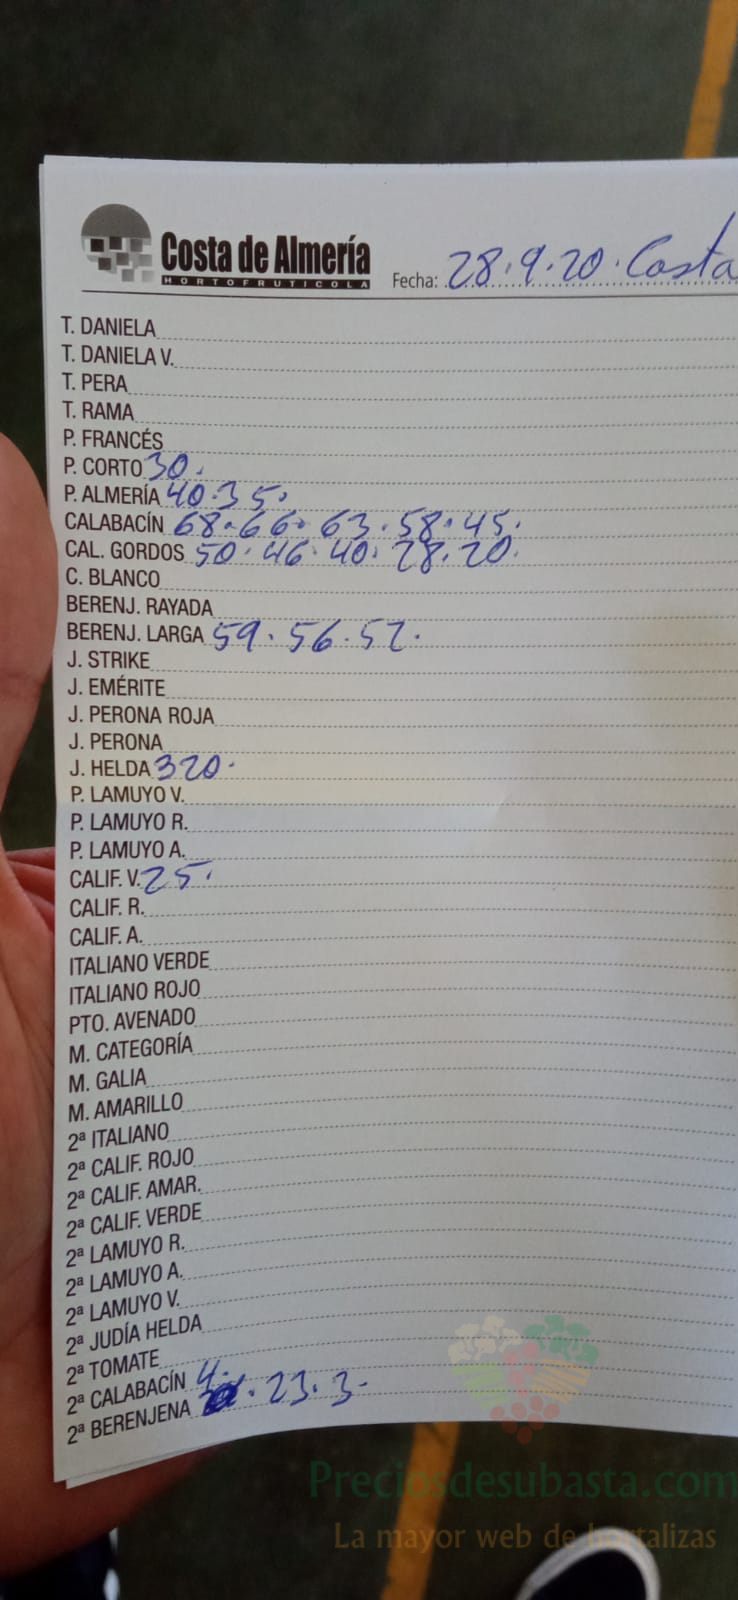 Costa de Almería
HORTOFRUTICOLA
Fecha: 28.9.20. Costa
T. DANIELA
T. DANIELA V.
T. PERA
T. RAMA
P. FRANCÉS
P. CORTO 30.
P. ALMERÍA 40.35.
CALABACÍN 68.66.63.58.45.
CAL. GORDOS 50.46.40.28.20.
C. BLANCO
BERENJ. RAYADA
BERENJ. LARGA 59.56.52.
J. STRIKE
J. EMÉRITE
J. PERONA ROJA
J. PERONA
J. HELDA 320.
P. LAMUYO V.
P. LAMUYO R.
P. LAMUYO A.
CALIF. V. 25.
CALIF. R.
CALIF. A.
ITALIANO VERDE
ITALIANO ROJO
PTO. AVENADO
M. CATEGORÍA
M. GALIA
M. AMARILLO
2ª ITALIANO
2ª CALIF. ROJO
2ª CALIF. AMAR.
2ª CALIF. VERDE
2ª LAMUYO R.
2ª LAMUYO A.
2ª LAMUYO V.
2ª JUDÍA HELDA
2ª TOMATE
2ª CALABACÍN 4.
2ª BERENJENA . 23. 3.
Preciosdesubasta.com
La mayor web de hortalizas